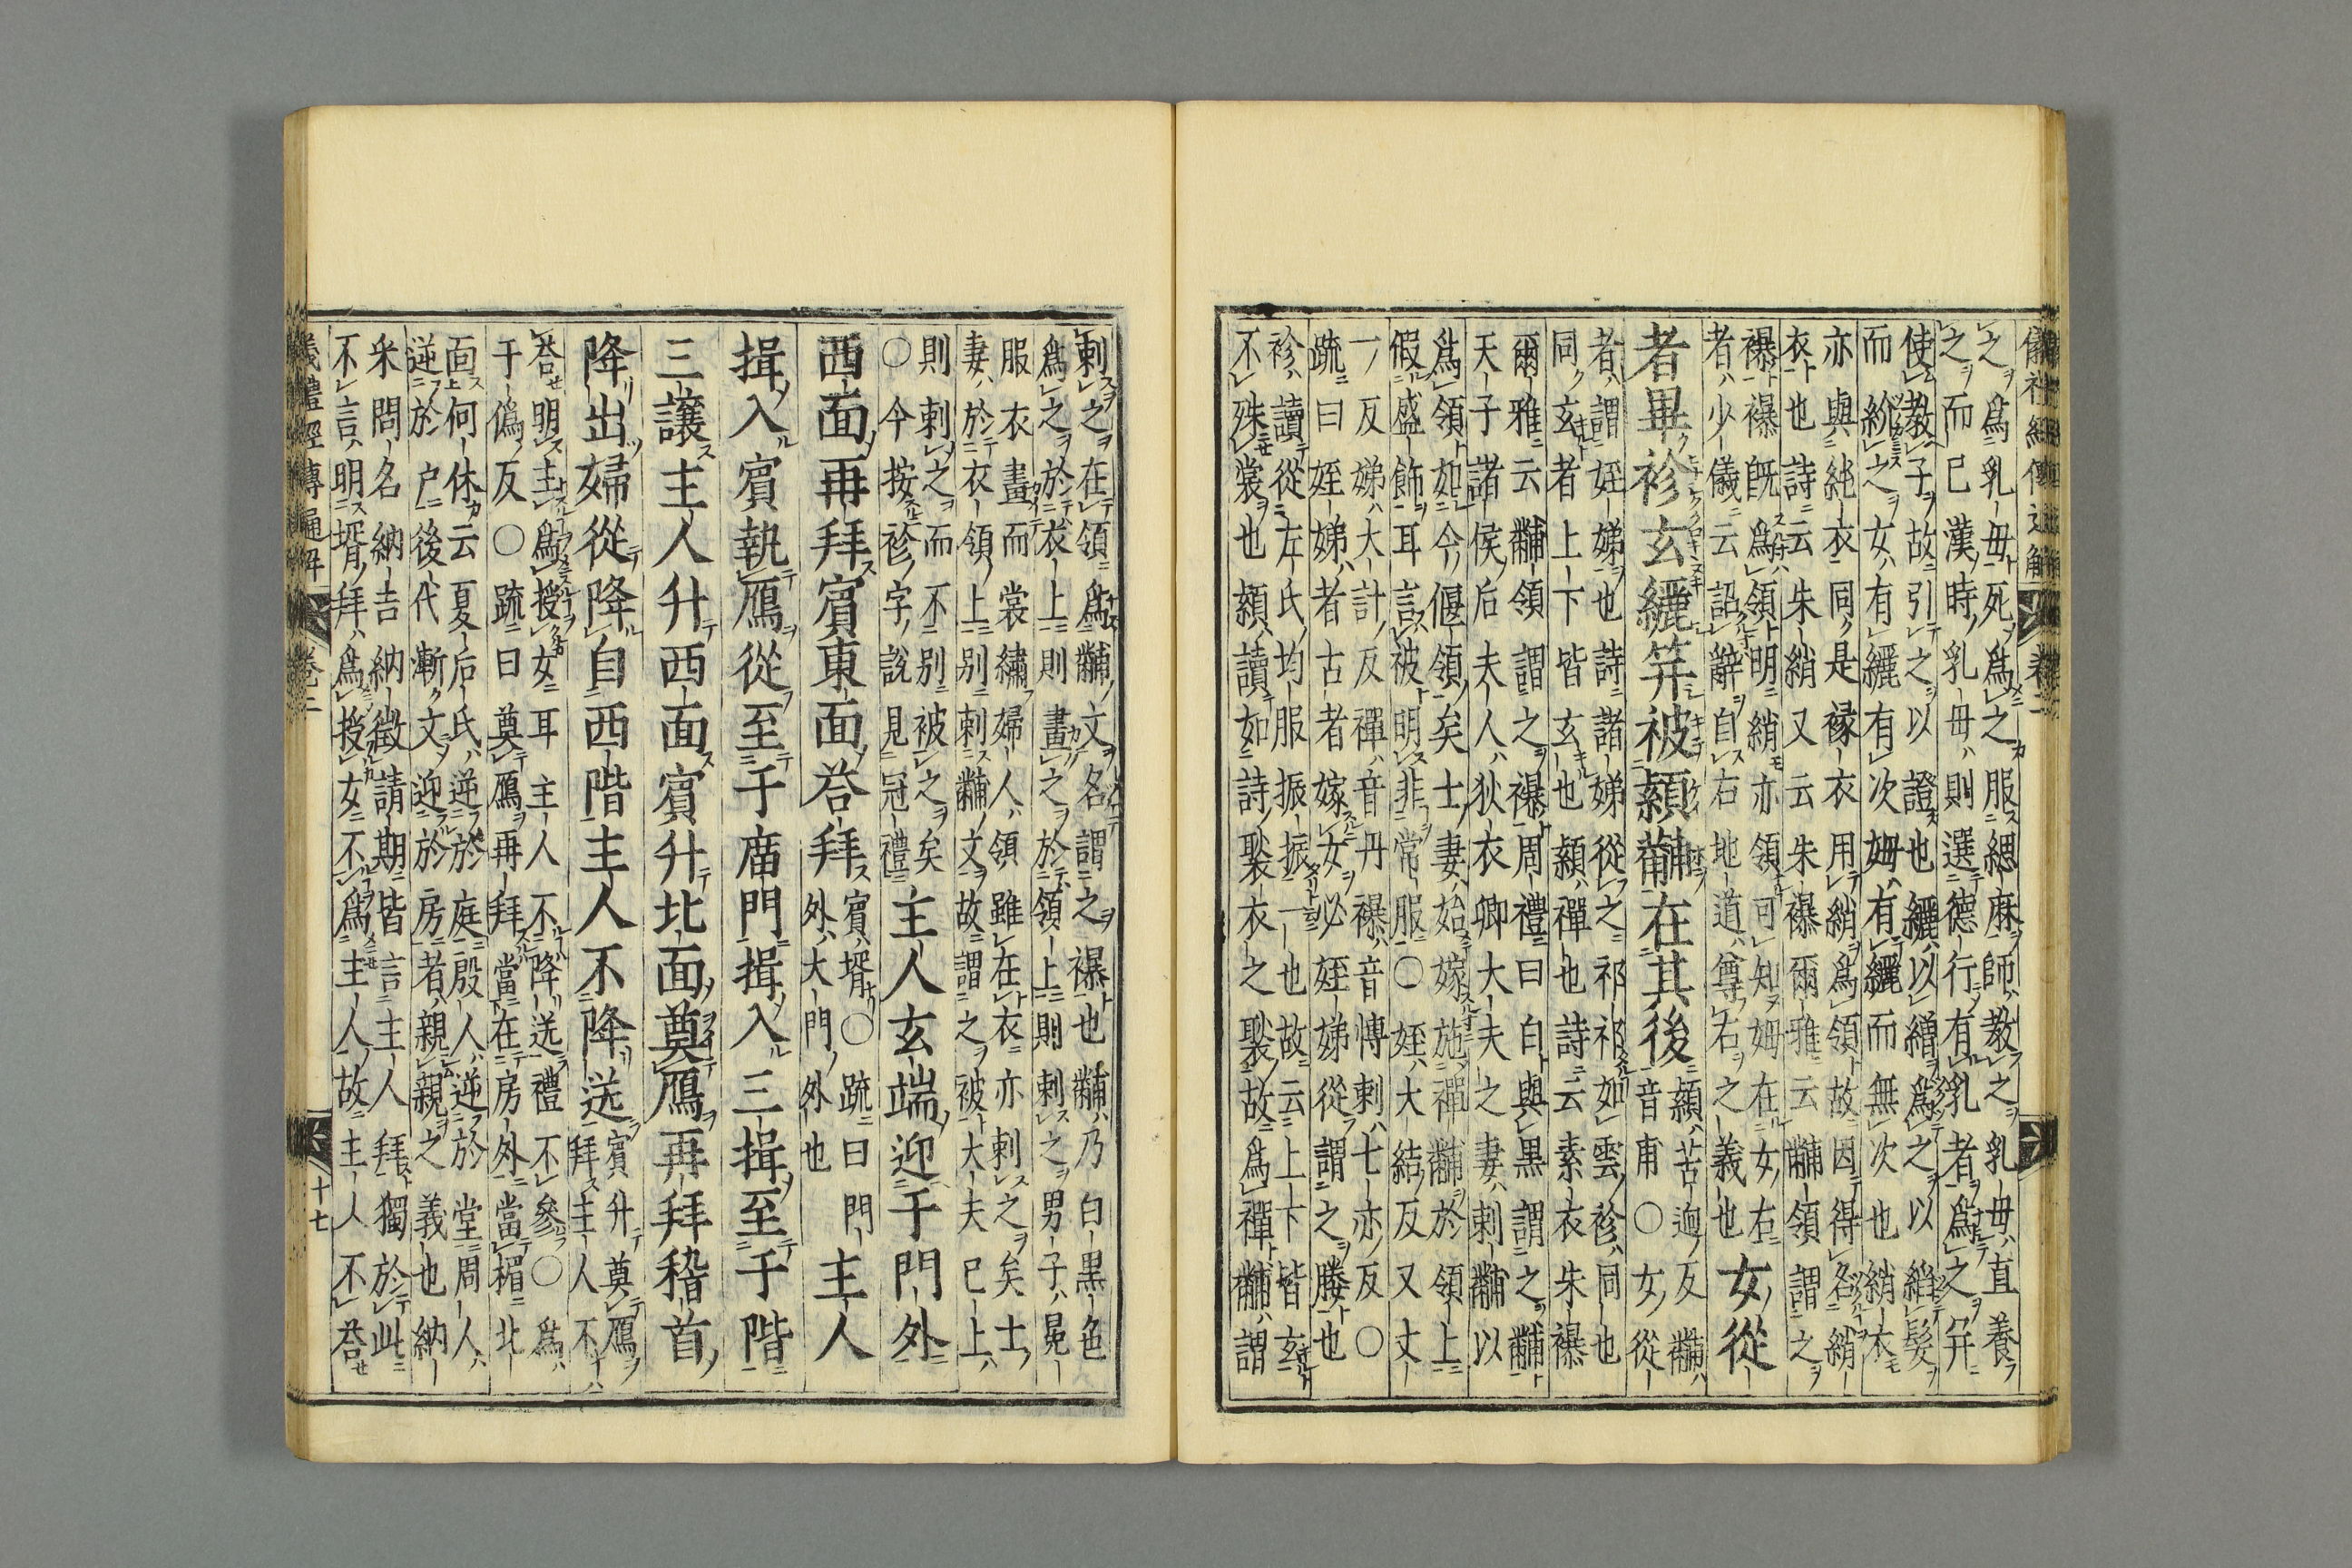 儀禮經傳通解 卷二
之爲乳母死爲之服緦麻師教之乳母直養
之而已漢時乳母則選德行有乳者爲之并
使教子故引之以證也纚以繒爲之以縚髮
而紒之女有纚有次姆有纚而無次也綃衣
亦與純衣同是褖衣用綃爲領故因得名綃
衣也詩云朱綃又云朱襮爾雅云黼領謂之
襮襮既爲領明綃亦領可知姆在女右
者少儀云詔辭自右地道尊右之義也
女從
者畢袗玄纚笄被熲黼在其後
熲苦迥反黼
音甫○女從
者謂姪娣也詩諸娣從之祁祁如雲袗同也
同玄者上下皆玄也熲禪也詩云素衣朱襮
爾雅云黼領謂之襮周禮曰白與黑謂之黼
天子諸侯后夫人狄衣卿大夫之妻刺黼以
爲領如今偃領矣士妻始嫁施禪黼於領上
假盛飾耳言被明非常服○姪大結反又丈
一反娣大計反禪音丹襮音博刺七亦反○
疏曰姪娣者古者嫁女必姪娣從謂之媵也
袗讀從左氏均服振振一也故云上下皆玄
不殊裳也熲讀如詩褧衣之褧故爲禪黼謂
刺之在領爲黼文名謂之襮也黼乃白黑色
爲之於衣上則畫之於領上則刺之男子冕
服衣畫而裳繡婦人領雖在衣亦刺之矣士
妻於衣領上別刺黼文故謂之被大夫已上
則刺之而不別被之矣
○今按袗字說見冠禮
主人玄端迎于門外
西面再拜賓東面荅拜
賓壻○疏曰門
外大門外也
主人
揖入賓執鴈從至于庿門揖入三揖至于階
三讓主人升西面賓升北面奠鴈再拜稽首
降出婦從降自西階主人不降送
賓升奠鴈
拜主人不
荅明主爲授女耳主人不降送禮不參○爲
于僞反○疏曰奠鴈再拜當在房外當楣北
面何休云夏后氏逆於庭殷人逆於堂周人
逆於戶後代漸文迎於房者親親之義也納
采問名納吉納徵請期皆言主人拜獨於此
不言明壻拜爲授女不爲主人故主人不荅
儀禮經傳通解 卷二 十七